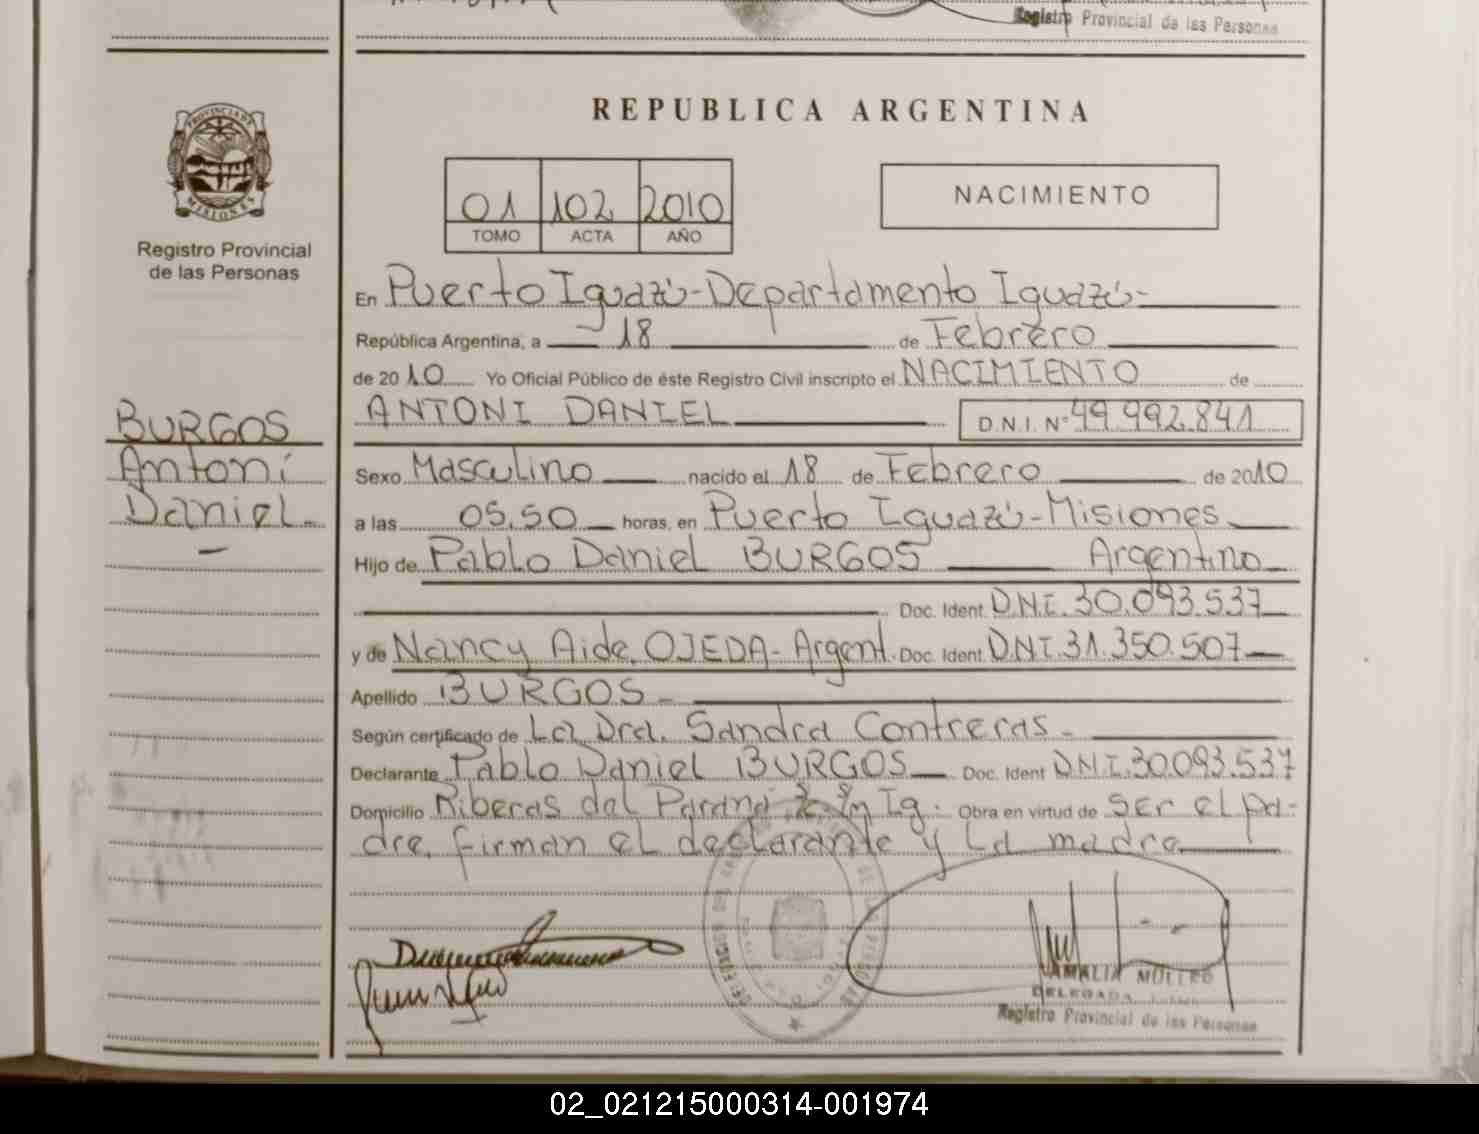 Registro Provincial de las Personas
REPUBLICA ARGENTINA
PROVINCIA DE
MISIONES
Registro Provincial
de las Personas
01 102 2010
TOMO ACTA AÑO
NACIMIENTO
En Puerto Iguazú-Departamento Iguazú-
República Argentina, a 18 de Febrero
de 2010 Yo Oficial Público de éste Registro Civil inscripto el NACIMIENTO de
ANTONI DANIEL D.N.I. Nº 49.992.841
BURGOS
Antoni
Daniel
Sexo Masculino nacido el 18 de Febrero de 2010
a las 05.50 horas, en Puerto Iguazú-Misiones
Hijo de Pablo Daniel BURGOS Argentino
Doc. Ident. D.N.I. 30.093.537
y de Nancy Aide OJEDA- Argent. Doc. Ident. DNI.31.350.507
Apellido BURGOS
Según certificado de La Dra. Sandra Contreras
Declarante Pablo Daniel BURGOS Doc. Ident DNI.30.093.537
Domicilio Riberas del Paraná Ig. Obra en virtud de ser el pa-
dre, firman el declarante y la madre
AMALIA
DELEGADA
Registro Provincial de las Personas
02_021215000314-001974